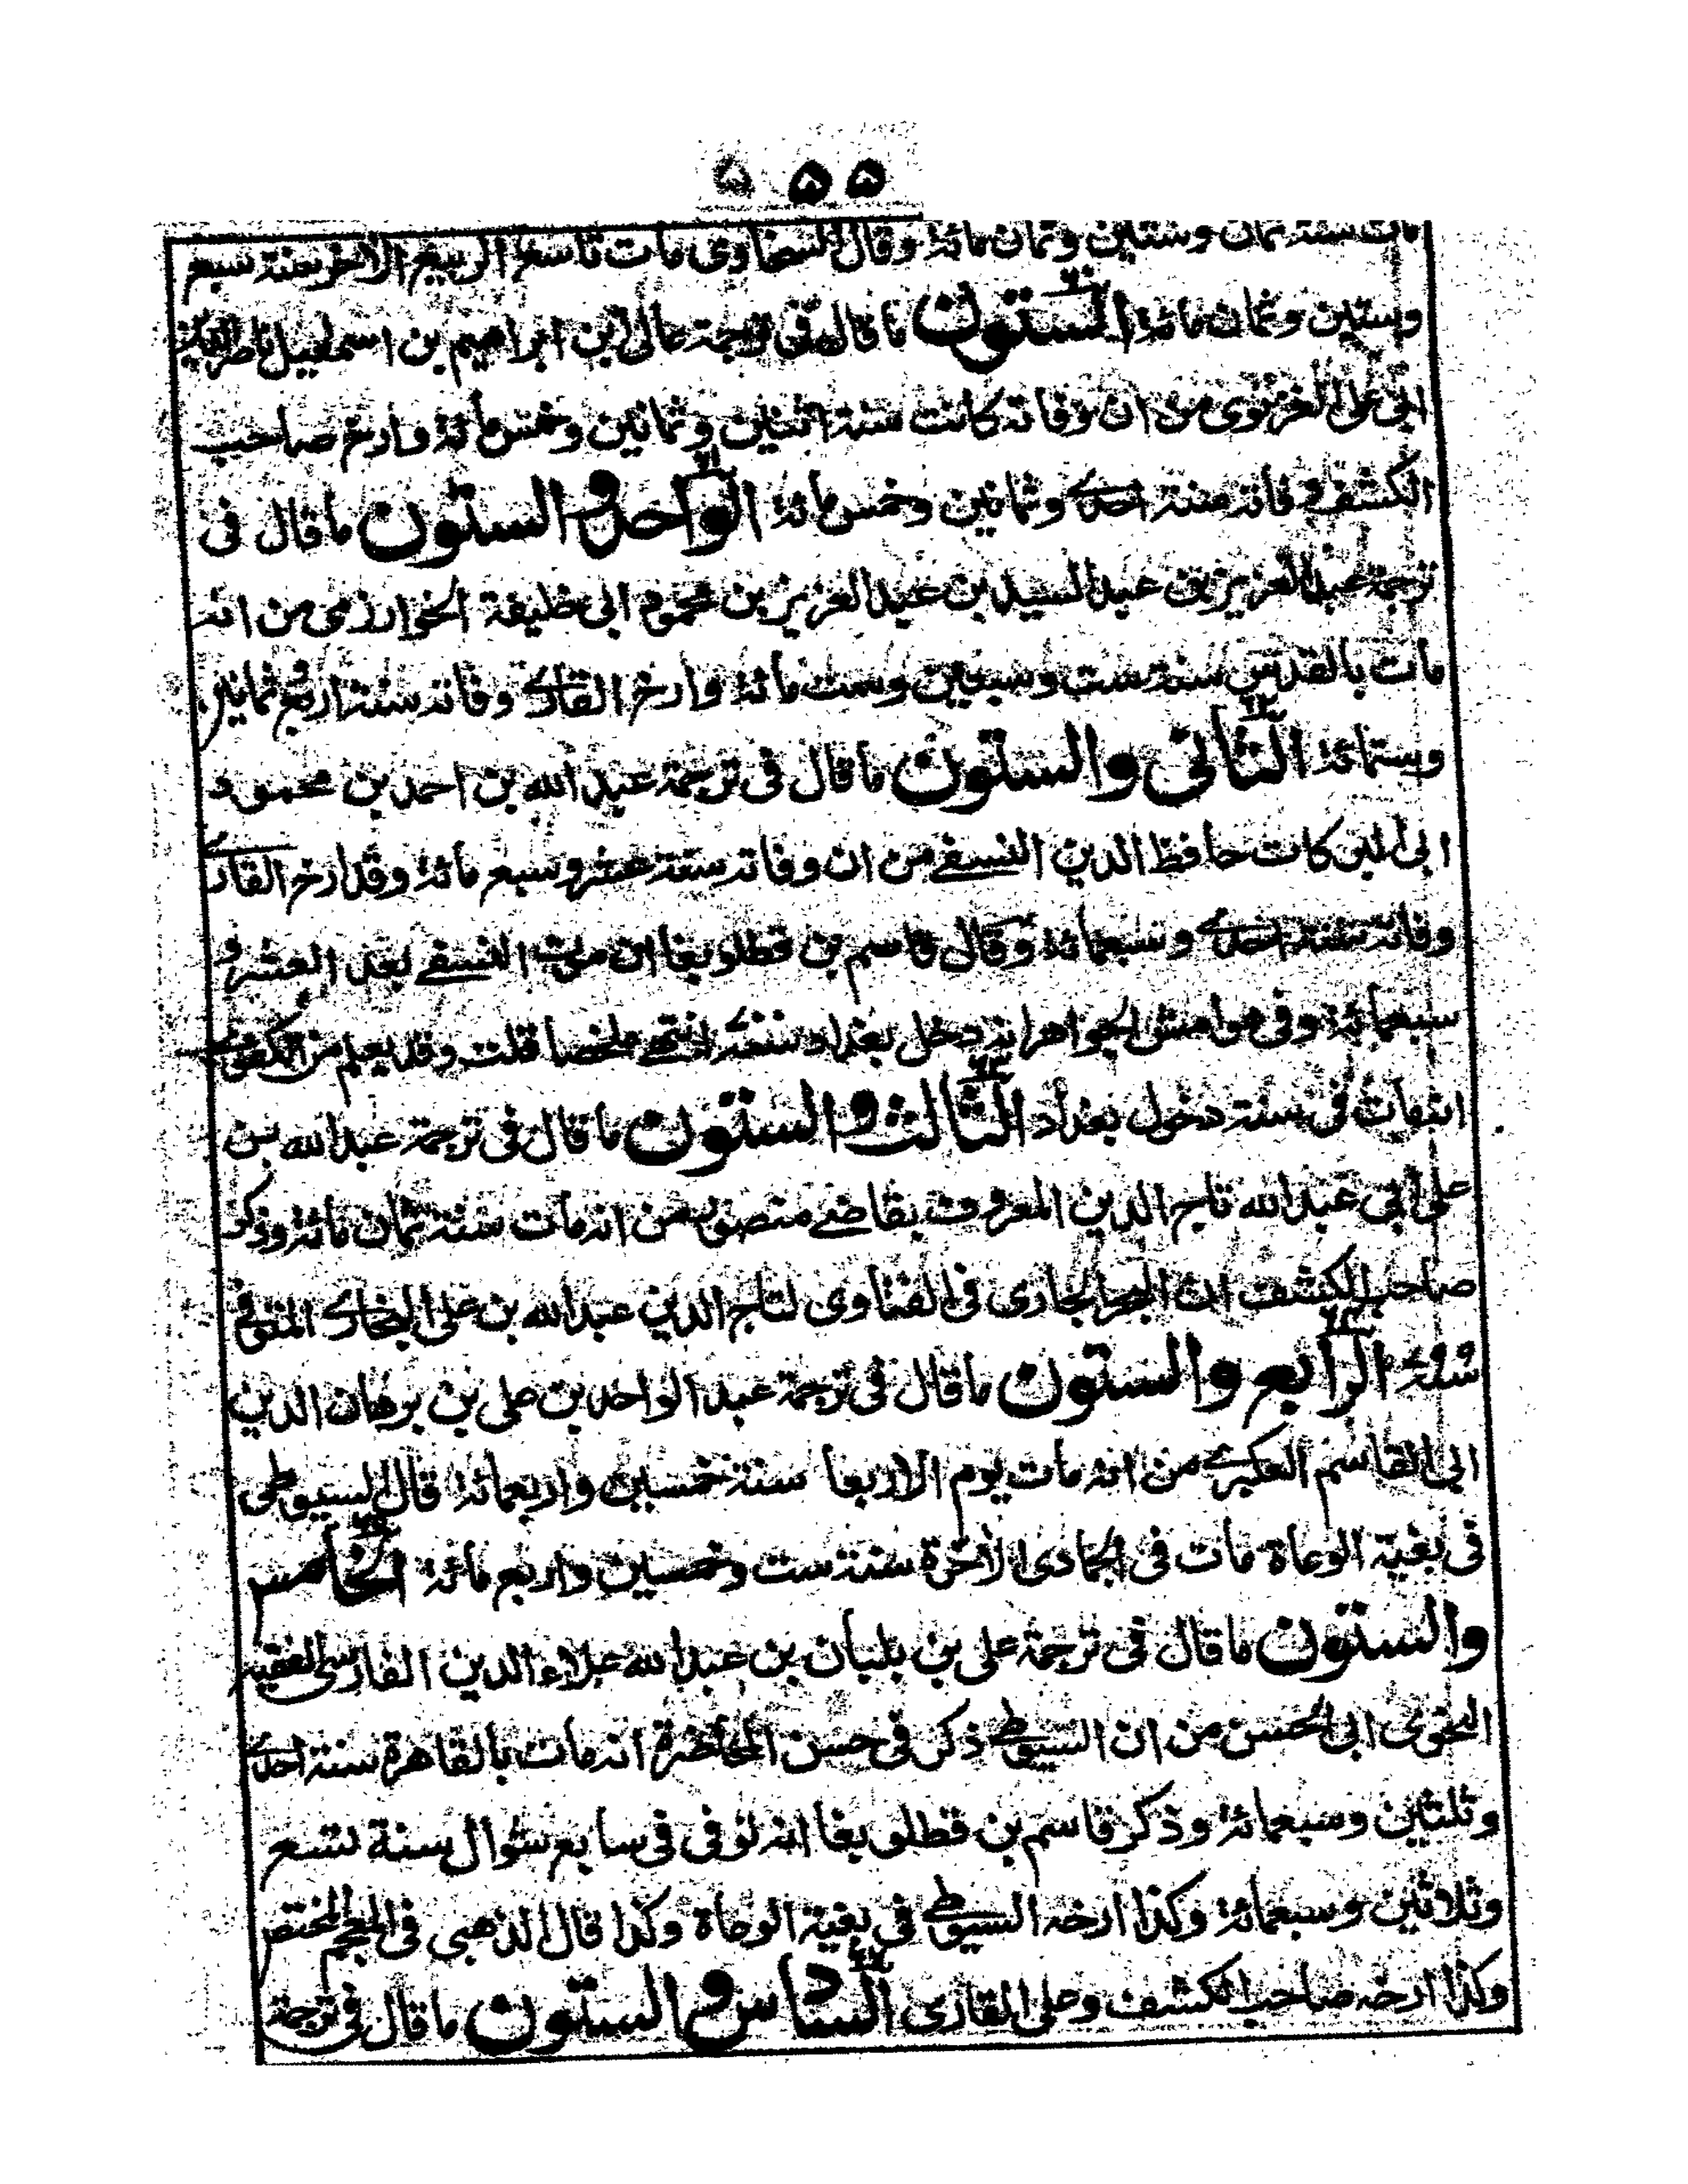 ۵۵
مات سنة ثمان وستين وثمان مائة وقال السخاوى مات تاسع الربيع الآخر سنة سبع
وستين وثمان مائة الستون ما قال فى ترجمة عالى بن ابراهيم بن اسمعيل ناصر الدين
ابى على الغزنوى من ان وفاته كانت سنة اثنتين وثمانين وخمس مائة وارخ صاحب
الكشف وفاته سنة احدے وثمانين وخمس مائة الواحد والستون ما قال فى
ترجمة عبد العزيز بن عبد السيد بن عبد العزيز بن محموم ابى خليفة الخوارزمى من انه
مات بالقدس سنة ست وسبعين وست مائة وارخ القارے وفاته سنة اربع وثمانين
وستمائة الثانى والستون ما قال فى ترجمة عبد الله بن احمد بن محمود
ابى البركات حافظ الدين النسفے من ان وفاته سنة عشر وسبع مائة وقد ارخ القارے
وفاته سنة احدے وسبعمائة وقال قاسم بن قطلوبغا ان موت النسفے بعد العشر و
سبعمائة وفى هوامش الجواهر انه دخل بغداد سنة انتهے ملخصا قلت وقد يعلم من الكفوے
اثبات فى سنة دخول بغداد الثالث والستون ما قال فى ترجمة عبد الله بن
على ابى عبد الله تاج الدين المعروف بقاضے منصور من انه مات سنة ثمان مائة وذكر
صاحب الكشف ان البحر الجارى فى الفتاوى لتاج الدين عبد الله بن على البخارے المتوفى
سنة الرابع والستون ما قال فى ترجمة عبد الواحد بن على بن برهان الدين
ابى القاسم العكبرے من انه مات يوم الاربعا سنة خمسين واربعمائة قال السيوطى
فى بغية الوعاة مات فى الجمادى الآخرة سنة ست وخمسين واربع مائة الخامس
والستون ما قال فى ترجمة على بن بلبان بن عبد الله علاء الدين الفارسى الفقيه
النحوى ابى الحسن من ان السيوطے ذكر فى حسن المحاضرة انه مات بالقاهرة سنة احدے
وثلثين وسبعمائة وذكر قاسم بن قطلوبغا انه توفى فى سابع شوال سنة تسع
وثلاثين وسبعمائة وكذا ارخه السيوطے فى بغية الوعاة وكذا قال الذهبى فى المعجم المختص
وكذا ارخه صاحب الكشف وعلى القارى السادس والستون ما قال فى ترجمة